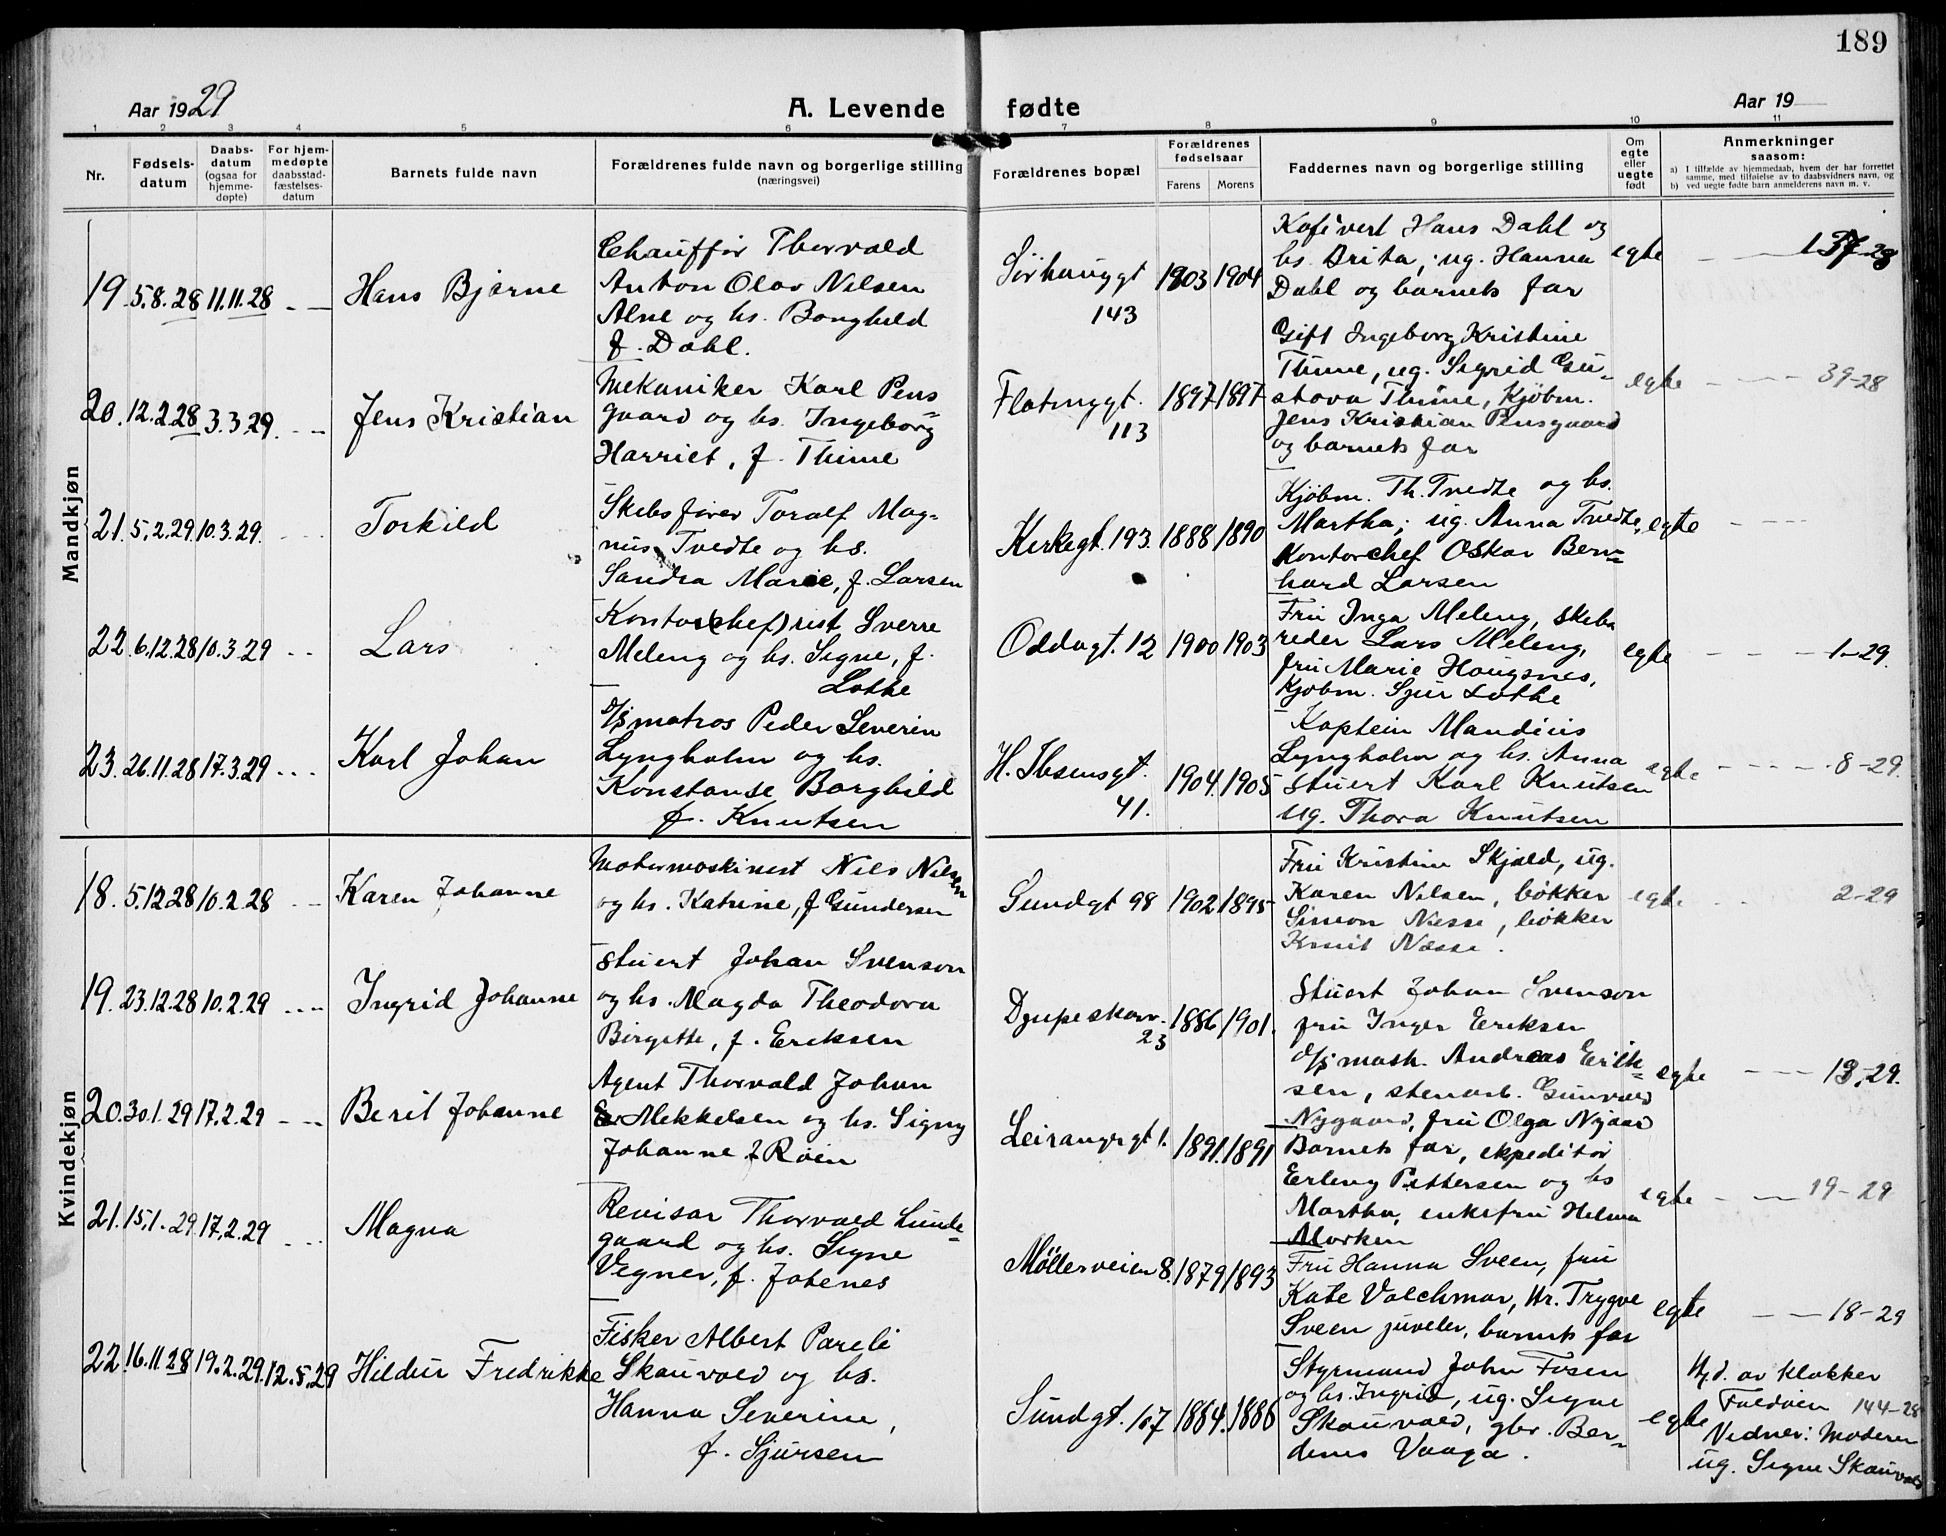 189
Aar 1929
A. Levende fødte
Aar 19
1 2 3 4 5 6 7 8 9 10 11
Nr.
Fødsels-
datum
Daabs-
datum
(ogsaa for
hjemme-
døpte)
For hjem-
medøpte
daabsstad-
fæstelses-
datum
Barnets fulde navn
Forældrenes fulde navn og borgerlige stilling
(næringsvei)
Forældrenes bopæl
Forældrenes
fødselsaar
Farens Morens
Faddernes navn og borgerlige stilling
Om
egte
eller
uegte
født
Anmerkninger
saasom:
a) I tilfælde av hjemmedaab, hvem der har forrettet
samme, med tilføielse av to daabsvidners navn, og
b) ved uegte fødte barn anmelderens navn m. v.
Mandkjøn
19. 5.8.28 11.11.28 - -
Hans Bjarne
Chauffør Thorvald
Anton Olav Nilsen
Alne og hs. Borghild
f. Dahl.
Sørhauggt
143
1903 1904
Kafévert Hans Dahl og
hs. Brita, ug. Hanna
Dahl og barnets far
egte
137-28
20. 12.2.28 3.3.29. - -
Jens Kristian
Mekaniker Karl Pens
gaard og hs. Ingeborg
Harriet, f. Thime
Flotmyggt.
113
1897 1897
Gift Ingeborg Kristine
Thime, ug. Sigrid Gu-
stava Thime, Kjøbm.
Jens Kristian Pensgaard
og barnets far
egte
39-28
21. 5.2.29. 10.3.29. - - -
Torkild
Skibsfører Toralf Mag-
nus Tvedte og hs.
Sandra Marie, f. Larsen
Kirkegt. 193.
1888 1890
Kjøbm. Th. Tvedte og hs.
Martha; ug. Anna Tvedte,
Kontorchef Oskar Bern-
hard Larsen
egte
22. 6.12.28 10.3.29 - -
Lars
Kontor(chef)ist Sverre
Meling og hs. Signe, f.
Lothe
Oddagt. 12
1900 1903
Fru Inga Meling, skibs
reder Lars Meling,
fru Marie Haugsnes,
Kjøbm. Sjur Lothe
egte
1-29.
23. 26.11.28 17.3.29 - - -
Karl Johan
d/s matros Peder Severin
Lyngholm og hs.
Konstanse Borghild
f. Knutsen
H. Ibsensgt.
41.
1904. 1905
Kaptein Mandius
Lyngholm og hs. Anna
Stuert Karl Knutsen
ug. Thora Knutsen
egte
8-29.
Kvindekjøn
18. 5.12.28 10.2.28 - -
Karen Johanne
Motormaskinist Nils Nilsen
og hs. Katrine, f. Gundersen
Sundgt 98
1902 1895
Fru Kristine Skjold, ug.
Karen Nilsen, bøkker
Simon Næsse, bøkker
Knut Næsse.
egte
2-29
19. 23.12.28 10.2.29 - - -
Ingrid Johanne
Stuert Johan Svenson
og hs. Magda Theodora
Birgitte, f. Eriksen
Djupeskarv.
23
1886 1901.
Stuert Johan Svenson
fru Inger Eriksen
d/s mask. Andreas Erik-
sen, stenarb. Gunvald
Nygaard, fru Olga Nygaard
egte
13-29.
20. 30.1.29 17.2.29 - - -
Berit Johanne
Agent Thorvald Johan
Mekkelsen og hs. Signy
Johanne f. Røen
Leirangrgt 1.
1891. 1891
Barnets far, ekspeditør
Erling Pettersen og hs
Martha, enkefru Helma
Morken
egte
19-29
21. 15.1.29 17.2.29 - - -
Magna
Revisor Thorvald Lunde-
gaard og hs. Signe
Vegner, f. Johnes
Møllerveien 8.
1879 1893
Fru Hanna Sveen, fru
Kate Valchmar, Hr. Trygve
Sveen juveler, barnets far
egte
18-29
22. 16.11.28 19.2.29. 12.5.29
Hildur Fredrikke
Fisker Albert Pareli
Skauvold og hs.
Hanna Severine,
f. Sjursen
Sundgt. 107
1884. 1886
Styrmand John Fosen
og hs. Ingrid, ug. Signe
Skauvold, gbr. Ber-
dines Vaaga.
egte
Hj.d. av klokker
Foldøien 144-28
Vidner: Moderen
ug. Signe Skauvold